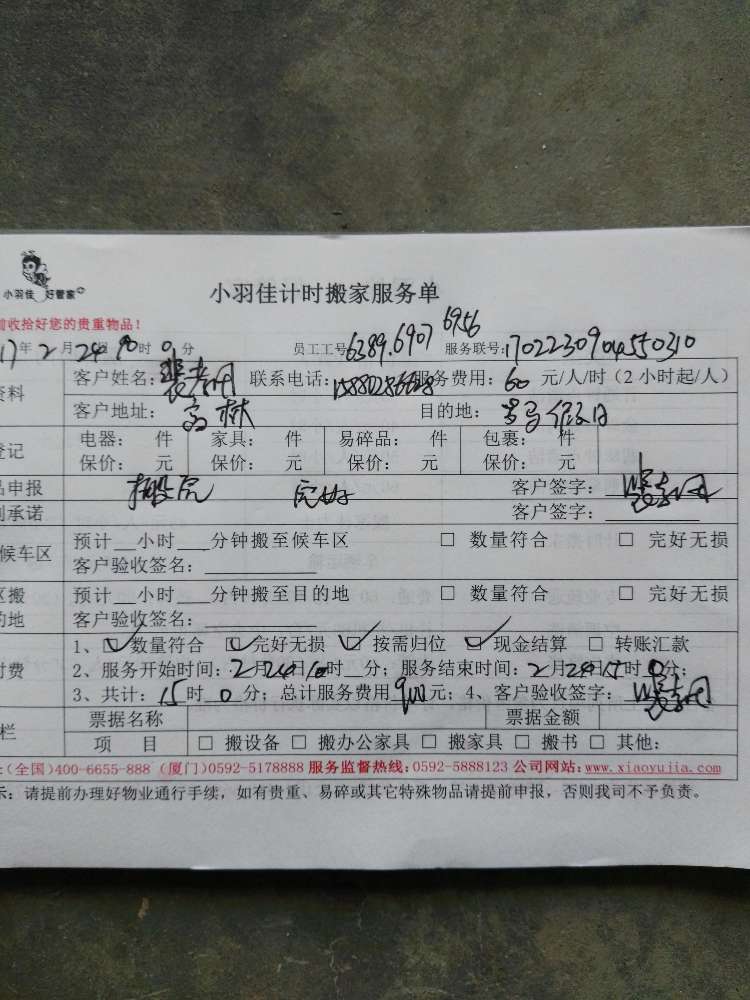 小羽佳 好管家
小羽佳计时搬家服务单
前收拾好您的贵重物品！
17年2月24日10时0分 员工工号:6389.6907 6956 服务联号:1702230904550310
资料 客户姓名: 联系电话: 服务费用:60 元/人/时（2小时起/人）
客户地址: 高林 目的地: 罗马假日
登记 电器: 件 家具: 件 易碎品: 件 包裹: 件
保价: 元 保价: 元 保价: 元 保价: 元
品申报 完好 客户签字:
别承诺 客户签字:
候车区 预计__小时___分钟搬至候车区 □ 数量符合 □ 完好无损
客户验收签名:
区搬 预计__小时___分钟搬至目的地 □ 数量符合 □ 完好无损
的地 客户验收签名:
1、☑数量符合 ☑完好无损 ☑按需归位 ☑现金结算 □ 转账汇款
付费 2、服务开始时间:2月24日10时__分; 服务结束时间: 2月24日15时0分;
3、共计: 15时0分; 总计服务费用900元; 4、客户验收签字:
栏 票据名称 票据金额
项 目 □ 搬设备 □ 搬办公家具 □ 搬家具 □ 搬书 □ 其他:
:(全国)400-6655-888 (厦门)0592-5178888 服务监督热线:0592-5888123 公司网站:www.xiaoyujia.com
示: 请提前办理好物业通行手续，如有贵重、易碎或其它特殊物品请提前申报，否则我司不予负责。